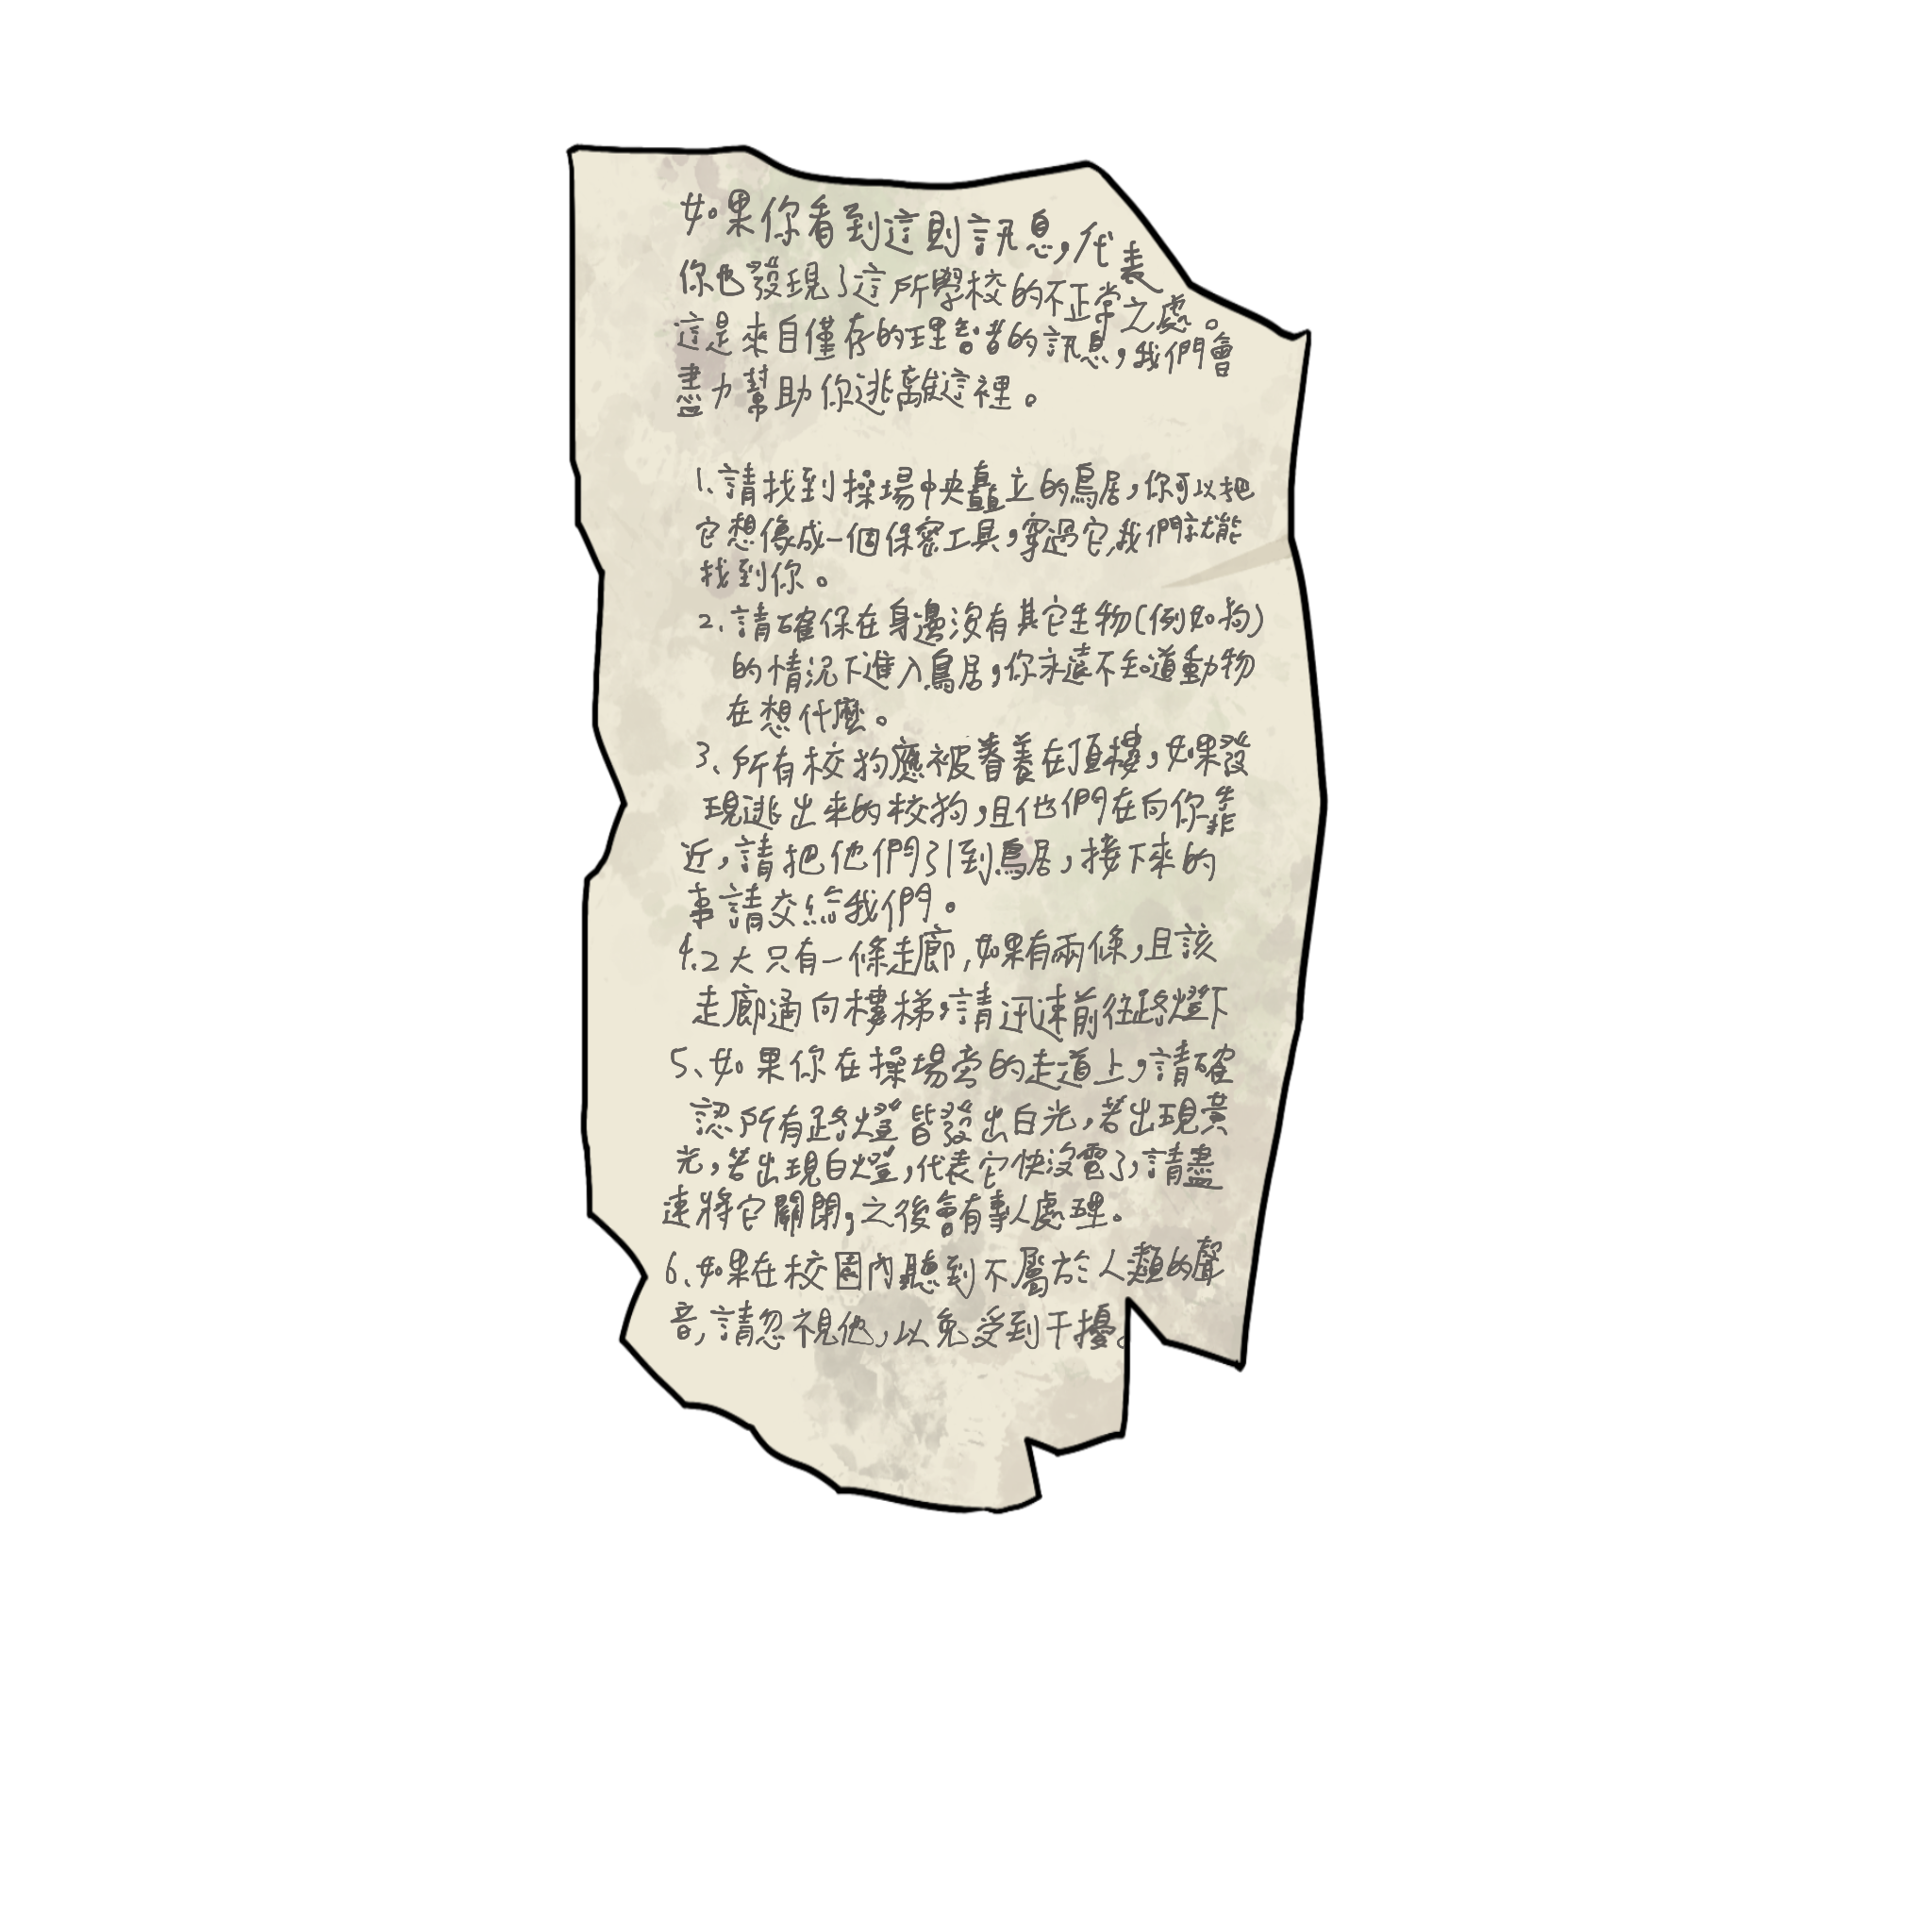 如果你看到這則訊息,代表
你也發現了這所學校的不正常之處。
這是來自僅存的理智者的訊息,我們會
盡力幫助你逃離這裡。
1.請找到操場中央矗立的鳥居,你可以把
它想像成一個保密工具,穿過它,我們就能
找到你。
2.請確保在身邊沒有其它生物(例如狗)
的情況下進入鳥居,你永遠不知道動物
在想什麼。
3、所有校狗應被眷養在頂樓,如果發
現逃出來的校狗,且他們在向你靠
近,請把他們引到鳥居,接下來的
事請交給我們。
4.2大只有一條走廊,如果有兩條,且該
走廊通向樓梯,請迅速前往路燈下
5、如果你在操場旁的走道上,請確
認所有路燈皆發出白光,若出現黃
光,若出現白燈,代表它快沒電了,請盡
速將它關閉,之後會有專人處理。
6、如果在校園內聽到不屬於人類的聲
音,請忽視他,以免受到干擾。